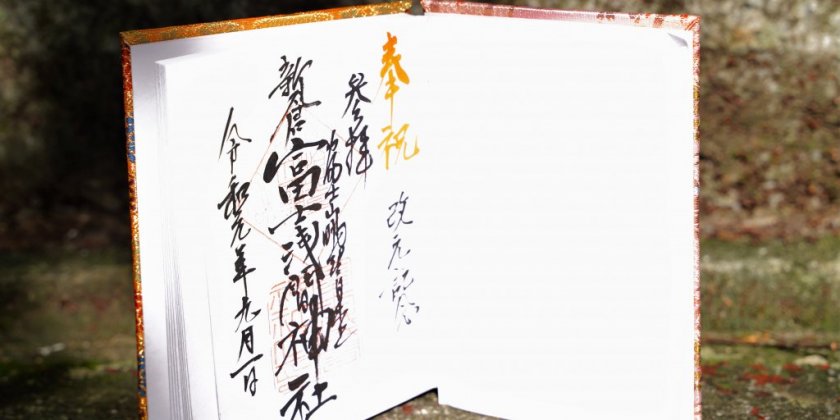 奉祝
改元記念
参拝
富士山
新倉富士浅間神社
令和元年九月一日